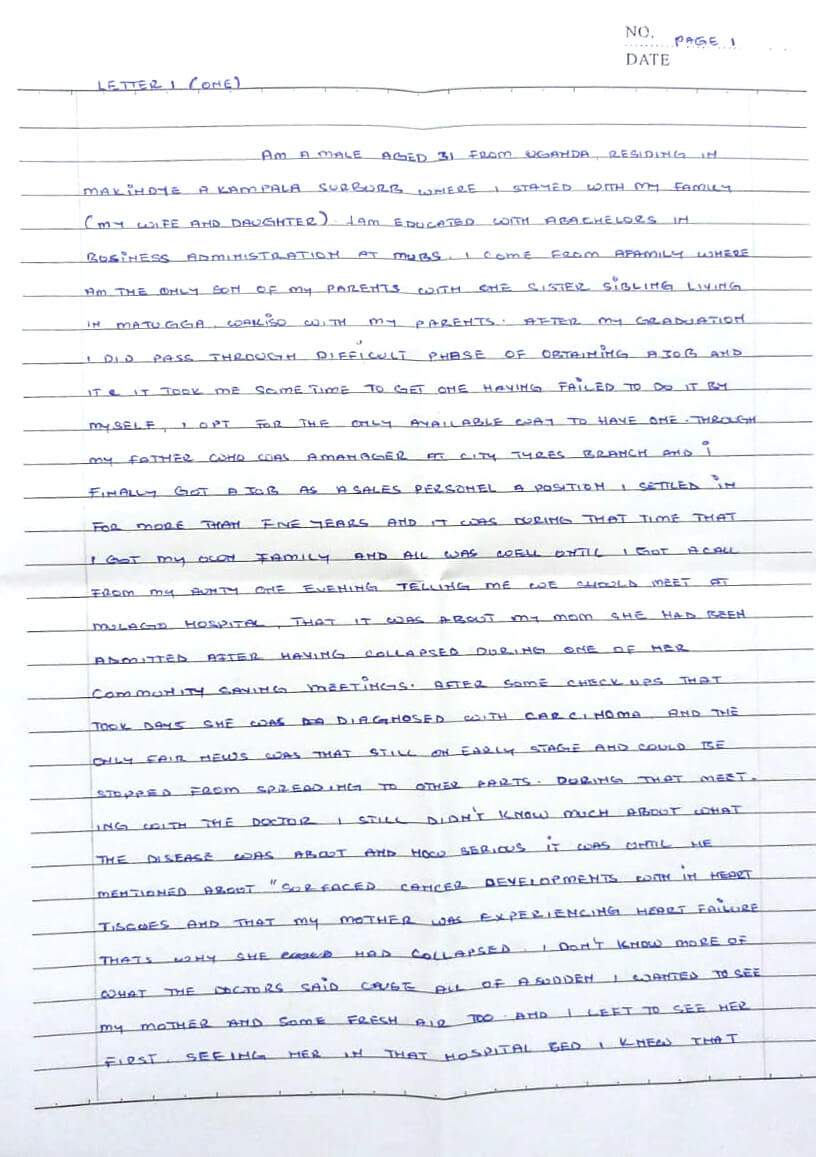 NO. PAGE 1
DATE
LETTER 1 (ONE)
AM A MALE AGED 31 FROM UGANDA, RESIDING IN
MAKINDYE A KAMPALA SURBURB WHERE I STAYED WITH MY FAMILY
(MY WIFE AND DAUGHTER). I AM EDUCATED WITH ABACHELORS IN
BUSINESS ADMINISTRATION AT MUBS. I COME FROM AFAMILY WHERE
AM THE ONLY SON OF MY PARENTS WITH ONE SISTER SIBLING LIVING
IN MATUGGA, WAKISO WITH MY PARENTS. AFTER MY GRADUATION
I DID PASS THROUGH DIFFICULT PHASE OF OBTAINING AJOB AND
IT & IT TOOK ME SOMETIME TO GET ONE HAVING FAILED TO DO IT BY
MYSELF, I OPT FOR THE ONLY AVAILABLE WAY TO HAVE ONE. THROUGH
MY FATHER WHO WAS AMANAGER AT CITY TYRES BRANCH AND I
FINALLY GOT AJOB AS ASALES PERSONEL A POSITION I SETTLED IN
FOR MORE THAN FIVE YEARS AND IT WAS DURING THAT TIME THAT
I GOT MY OWN FAMILY AND ALL WAS WELL UNTIL I GOT ACALL
FROM MY AUNTY ONE EVENING TELLING ME WE SHOULD MEET AT
MULAGO HOSPITAL, THAT IT WAS ABOUT MY MOM SHE HAD BEEN
ADMITTED AFTER HAVING COLLAPSED DURING ONE OF HER
COMMUNITY SAVING MEETINGS. AFTER SOME CHECK UPS THAT
TOOK DAYS SHE WAS DIAGNOSED WITH CARCINOMA, AND THE
ONLY FAIR NEWS WAS THAT STILL ON EARLY STAGE AND COULD BE
STOPPED FROM SPREADING TO OTHER PARTS. DURING THAT MEET-
ING WITH THE DOCTOR I STILL DIDN'T KNOW MUCH ABOUT WHAT
THE DISEASE WAS ABOUT AND HOW SERIOUS IT WAS UNTIL HE
MENTIONED ABOUT "SURFACED CANCER DEVELOPMENTS WITH IN HEART
TISSUES AND THAT MY MOTHER WAS EXPERIENCING HEART FAILURE
THATS WHY SHE HAD COLLAPSED. I DON'T KNOW MORE OF
WHAT THE DOCTORS SAID CAUSE ALL OF ASUDDEN I WANTED TO SEE
MY MOTHER AND SOME FRESH AIR TOO. AND I LEFT TO SEE HER
FIRST. SEEING HER IN THAT HOSPITAL BED I KNEW THAT